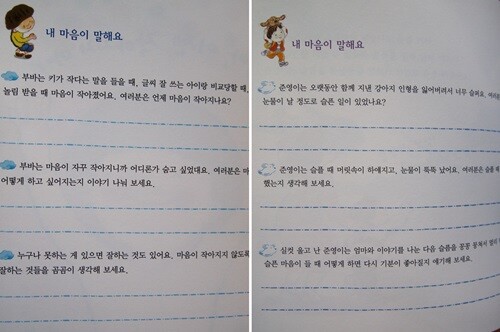 내 마음이 말해요
부바는 키가 작다는 말을 들을 때, 글씨 잘 쓰는 아이랑 비교당할 때,
놀림 받을 때 마음이 작아졌어요. 여러분은 언제 마음이 작아지나요?
부바는 마음이 자꾸 작아지니까 어디론가 숨고 싶었대요. 여러분은 마
어떻게 하고 싶어지는지 이야기 나눠 보세요.
누구나 못하는 게 있으면 잘하는 것도 있어요. 마음이 작아지지 않도록
잘하는 것들을 곰곰이 생각해 보세요.
내 마음이 말해요
준영이는 오랫동안 함께 지낸 강아지 인형을 잃어버려서 너무 슬퍼요.
눈물이 날 정도로 슬픈 일이 있었나요?
준영이는 슬플 때 머릿속이 하얘지고, 눈물이 뚝뚝 났어요. 여러분은 슬플 때
했는지 생각해 보세요.
실컷 울고 난 준영이는 엄마와 이야기를 나눈 다음 슬픔을 꽁꽁 뭉쳐서
슬픈 마음이 들 때 어떻게 하면 다시 기분이 좋아질지 얘기해 보세요.